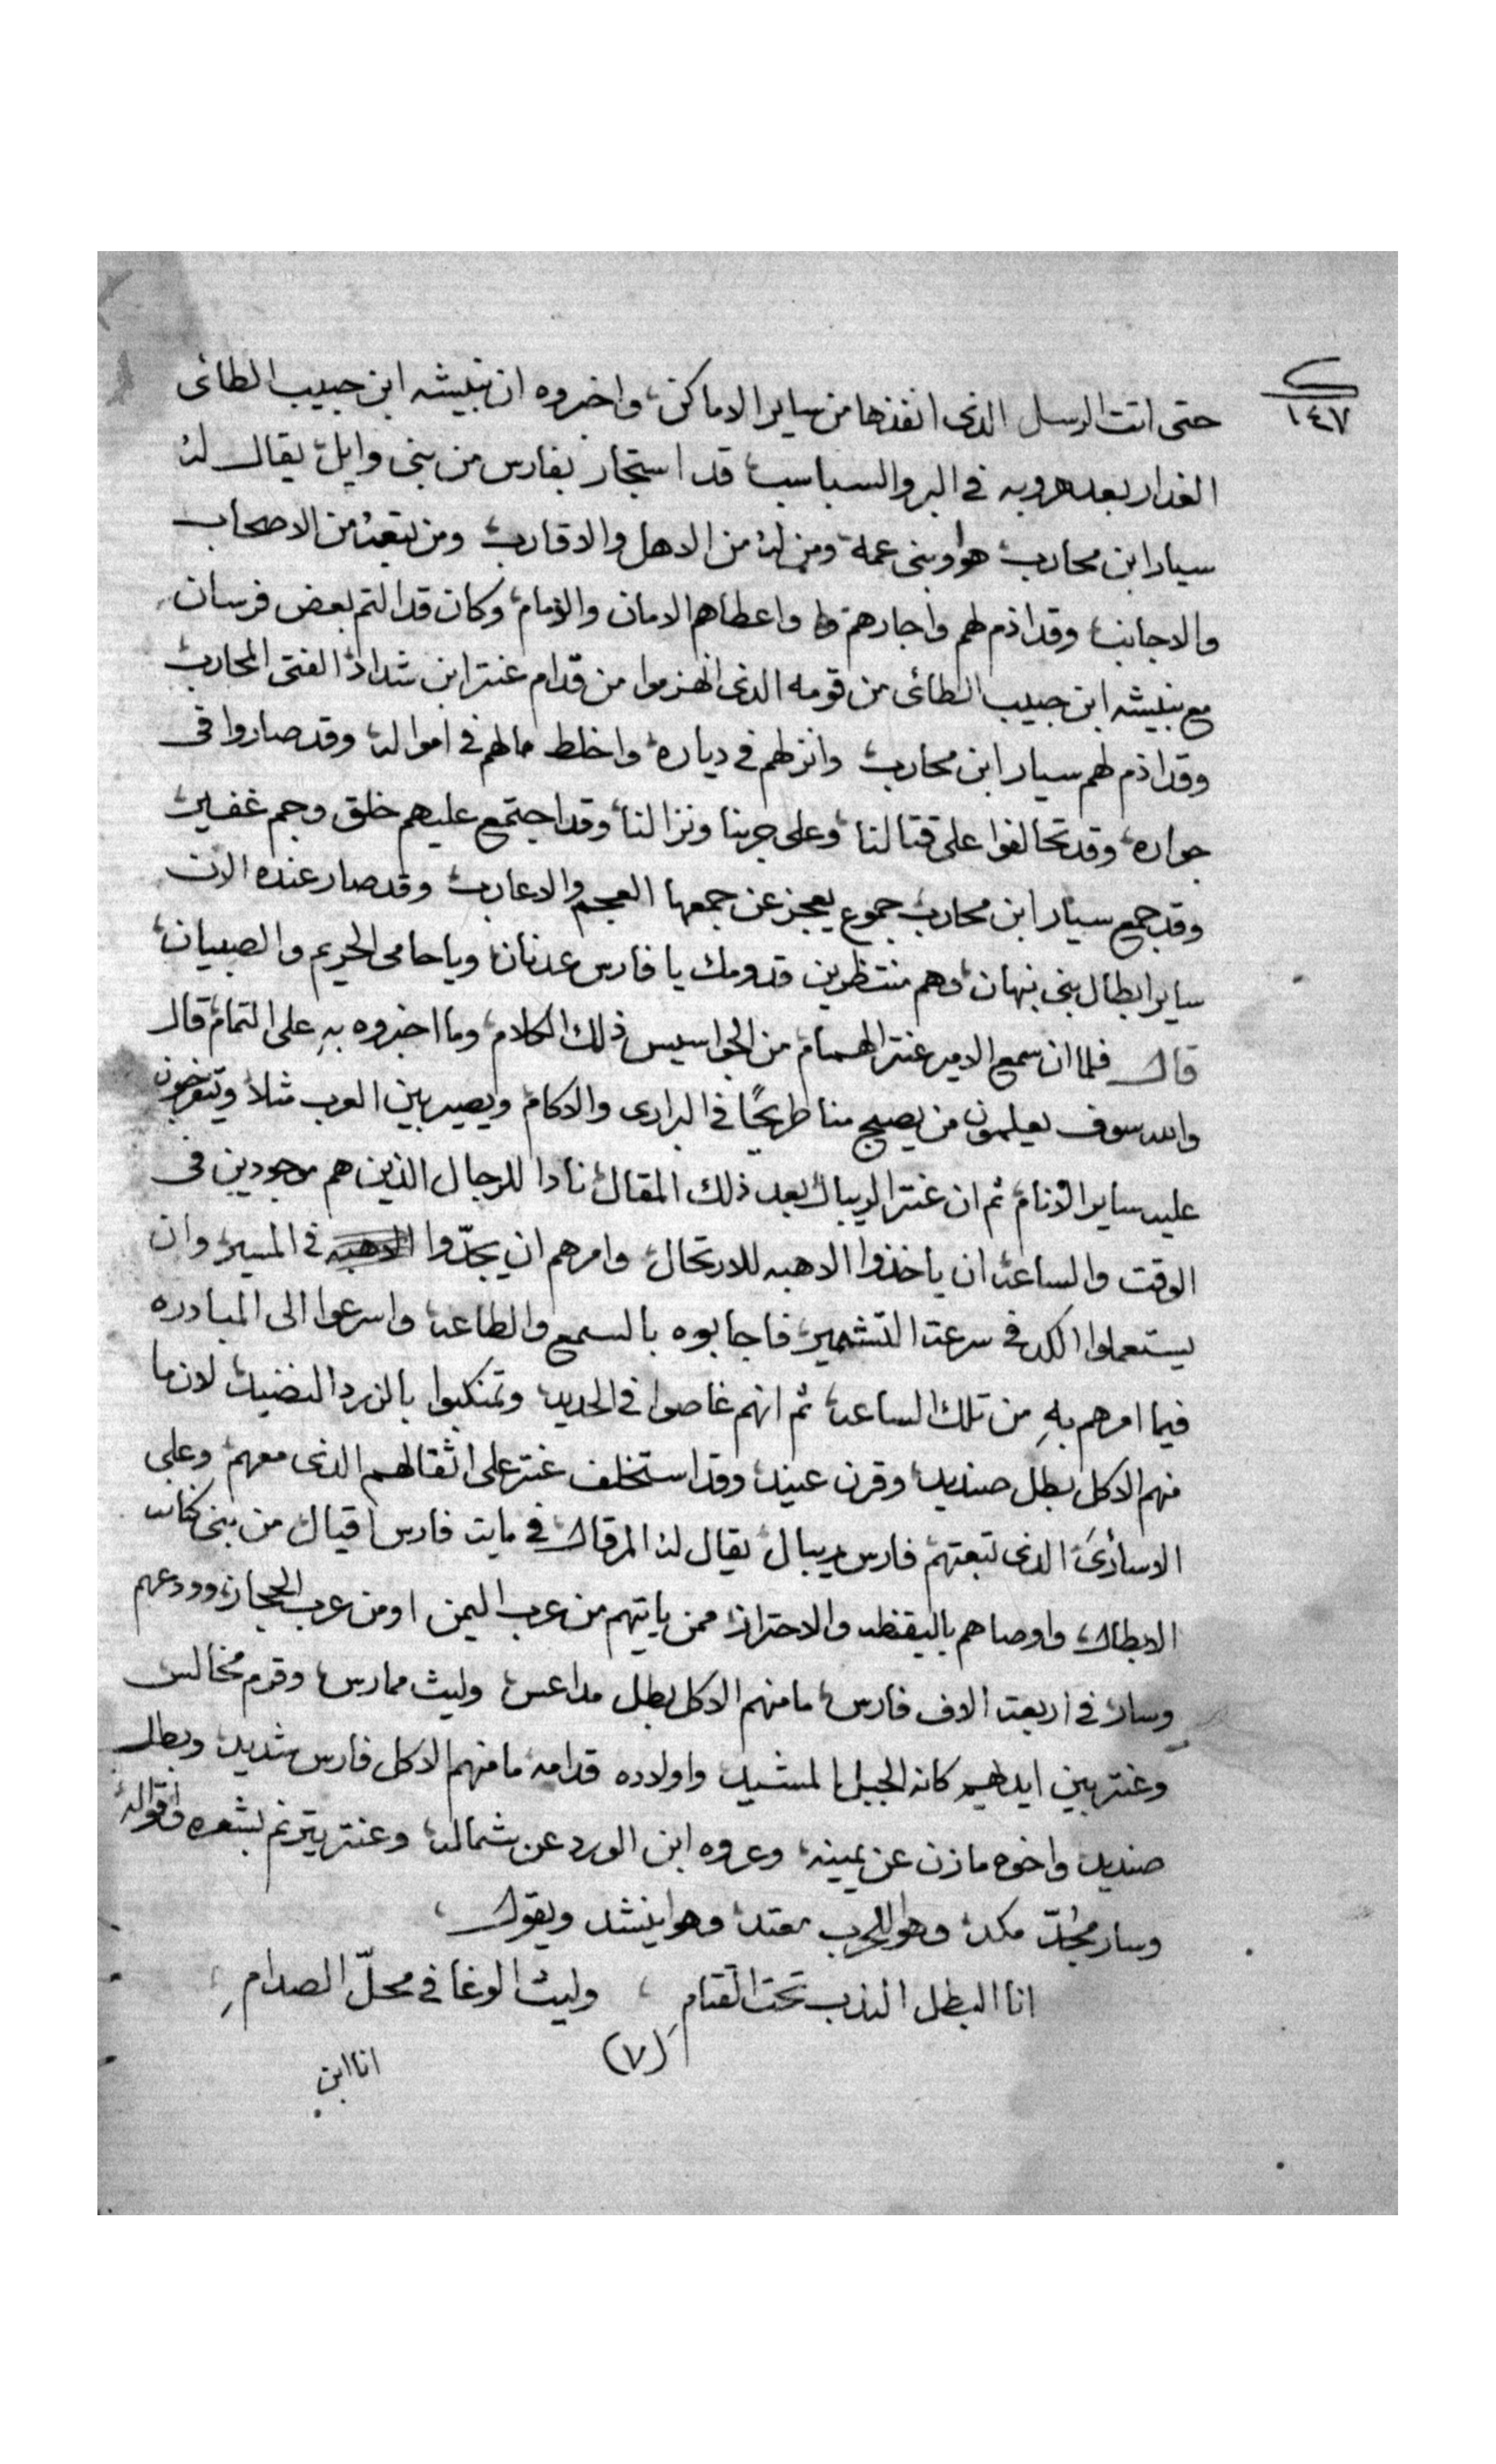 ١٤٧
حتى اتت الرسل الذى انفذها من ساير الاماكن، واخبروه ان نبيشه ابن حبيب الطائى
الغدار بعد هروبه فى البر والسباسب، قد استجار بفارس من بنى وايل، يقال له
سيار ابن محارب، هوا وبنى عمه، ومن له من الاهل والاقارب، ومن تبعه من الاصحاب
والاجانب، وقد اذم لهم واجارهم واعطاهم الامان والذمام، وكان قد التم بعض فرسان
مع نبيشه ابن حبيب الطائى من قومه الذى انهزموا من قدام عنتر ابن شداد، الفتى المحارب،
وقد اذم لهم سيار ابن محارب، وانزلهم فى دياره، واخلط مالهم فى امواله، وقد صاروا فى
جواره، وقد تحالفوا على قتالنا، وعلى حربنا ونزالنا، وقد اجتمع عليهم خلق وجم غفير،
وقد جمع سيار ابن محارب جموع يعجز عن جمعها العجم والاعارب، وقد صار عنده الان
ساير ابطال بنى نبهان، وهم منتظرين قدومك يا فارس عدنان، ويا حامى الحريم والصبيان،
قال فلما ان سمع الامير عنتر الهمام، من الجواسيس ذلك الكلام، وما اخبروه بهِ على التمام، قال
والله سوف يعلمون من يصبح منا طريحًا فى البرارى والاكام، ويصير بين العرب مثلا، ويتفرجون
عليه ساير الانام، ثم ان عنتر الريبال، بعد ذلك المقال، نادا للرجال الذين هم موجودين فى
الوقت والساعه، ان ياخذوا الاهبه للارتحال، وامرهم ان يجدّوا فى المسير، وان
يستعملوا الكد فى سرعة التشمير، فاجابوه بالسمع والطاعه، واسرعوا الى المبادره
فيما امرهم بهِ من تلك الساعه، ثم انهم غاصوا فى الحديد، وتمنكبوا بالزرد النضيد، لان ما
منهم الا كل بطل صنديد، وقرن عنيد، وقد استخلف عنتر على اثقالهم الذى معهم، وعلى
الاسارىَ الذى تبعتهم، فارس ريبال، يقال له المرقال، فى مايت فارس اقيال، من بنى كنانه
الابطال، واوصاهم باليقظه والاحتراز، ممن ياتيهم من عرب اليمن او من عرب الحجاز، وودعهم
وسار، فى اربعة الاف فارس، ما منهم الا كل بطل مداعس، وليث ممارس، وقرم مخالس
وعنتر بين ايديهم كانه الجبل المشيد، واولاده قدامه، ما منهم الا كل فارس شديد، وبطل
صنديد، واخوه مازن عن يمينه، وعروه ابن الورد عن شماله، وعنتر يترنم بشعره واقواله
وسار مُجدّ مكد، وهوا للحرب معتد، وهوا ينشد ويقول،
انا البطل الندب تحت القتامِ ، وليث الوغا فى محلّ الصدامِ ،
(٧)
انا ابن